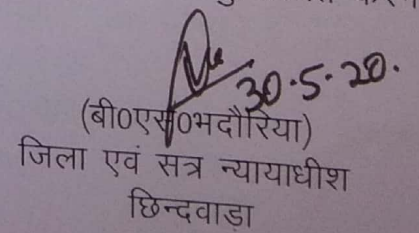 30.5.20.
(बी0एस0भदौरिया)
जिला एवं सत्र न्यायाधीश
छिन्दवाडा